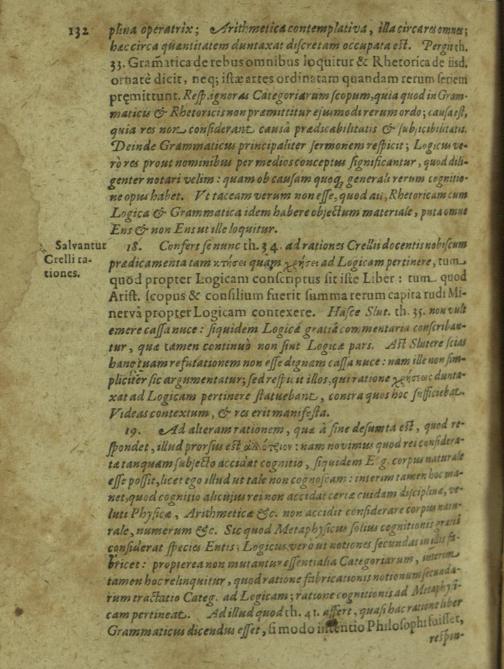 132
plina operatrix; Arithmetica contemplativa, illa circa res omnes;
hæc circa quantitatem duntaxat discretam occupata est. Pergit th.
33. Gram̃atica de rebus omnibus loquitur & Rhetorica de iisd.
ornatè dicit, neq; istæ artes ordinatam quandam rerum seriem
pręmittunt. Resp. ignoras Categoriarum scopum, quia quod in Gram-
maticis & Rhetoricis non præmittitur ejusmodi rerum ordo; causa est,
quia res non considerant causâ prædicabilitatis & subjicibilitatis.
Deinde Grammaticus principaliter sermonem respicit; Logicus ve-
rò res prout nominibus per medios conceptus significantur, quod dili-
genter notari velim: quam ob causam quoq; generali rerum cognitio-
ne opus habet. Vt taceam verum non esse, quod ait, Rhetoricam cum
Logica & Grammatica idem habere objectum materiale, puta omne
Ens & non Ens ut ille loquitur.
Salvantur
Crelli ra-
tiones.
18. Confert se nunc th. 34. ad rationes Crellii docentis nobiscum
prædicamenta tam κτήσει quam χρήσει ad Logicam pertinere, tum
quòd propter Logicam conscriptus sit iste Liber: tum quod
Arist. scopus & consilium fuerit summa rerum capita rudi Mi-
nervâ propter Logicam contexere. Hasce Slut. th. 35. non vult
emere cassa nuce: siquidem Logicæ gratiâ commentaria conscriban-
tur, quæ tamen continuò non sint Logicæ pars. Ast Slutere scias
hanc tuam refutationem non esse dignam cassa nuce: nam ille non sim-
pliciter sic argumentatur, sed respicit illos, qui ratione χρήσεως dunta-
xat ad Logicam pertinere statuebant, contra quos hoc sufficiebat.
Videas contextum, & res erit manifesta.
19. Ad alteram rationem, quæ à fine desumta est, quod re-
spondet, illud prorsus est nam novimus quod rei considera-
ta tanquam subjecto accidat cognitio, siquidem E g. corpus naturale
esse possit, licet ego illud ut tale non cognoscam: interim tamen hoc ma-
net, quod cognitio alicujus rei non accidat certæ cuidam disciplinæ, ve-
luti Physicæ, Arithmeticæ &c. non accidit considerare corpus natu-
rale, numerum &c. Sic quod Metaphysicus solius cognitionis gratiâ
considerat species Entis; Logicus verò ut notiones secundas in illis fa-
bricet: propterea non mutantur essentialia Categoriarum, interim
tamen hoc relinquitur, quod ratione fabricationis notionum secunda-
rum tractatio Categ. ad Logicam; ratione cognitionis ad Metaphysi-
cam pertineat. Ad illud quod th. 41. affert, quasi hac ratione liber
Grammaticus dicendus esset, si modo intentio Philosophi fuisset,
respon-